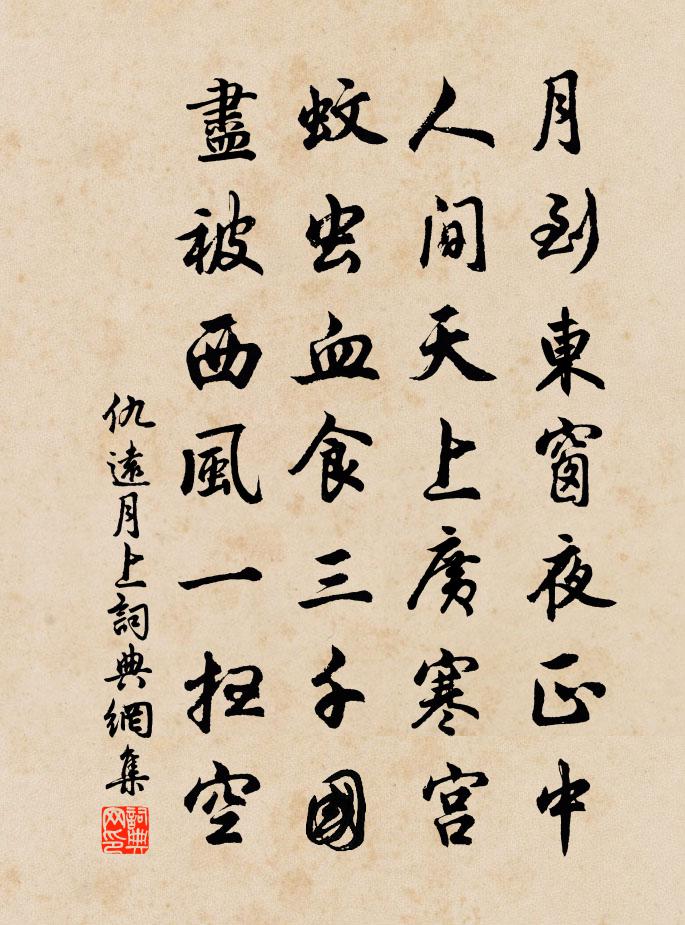 月到東窗夜正中
人間天上廣寒宮
蚊虫血食三千國
盡被西風一掃空
仇遠月上詞典網集
詞典網印